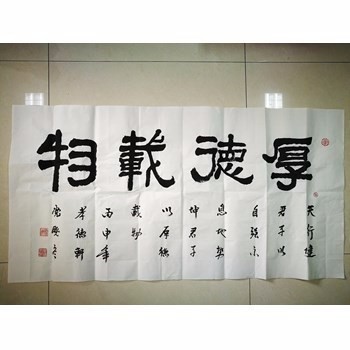 厚德載物
天行健
君子以
自强不
息地势
坤君子
以厚德
載物
丙申年
孝德軒